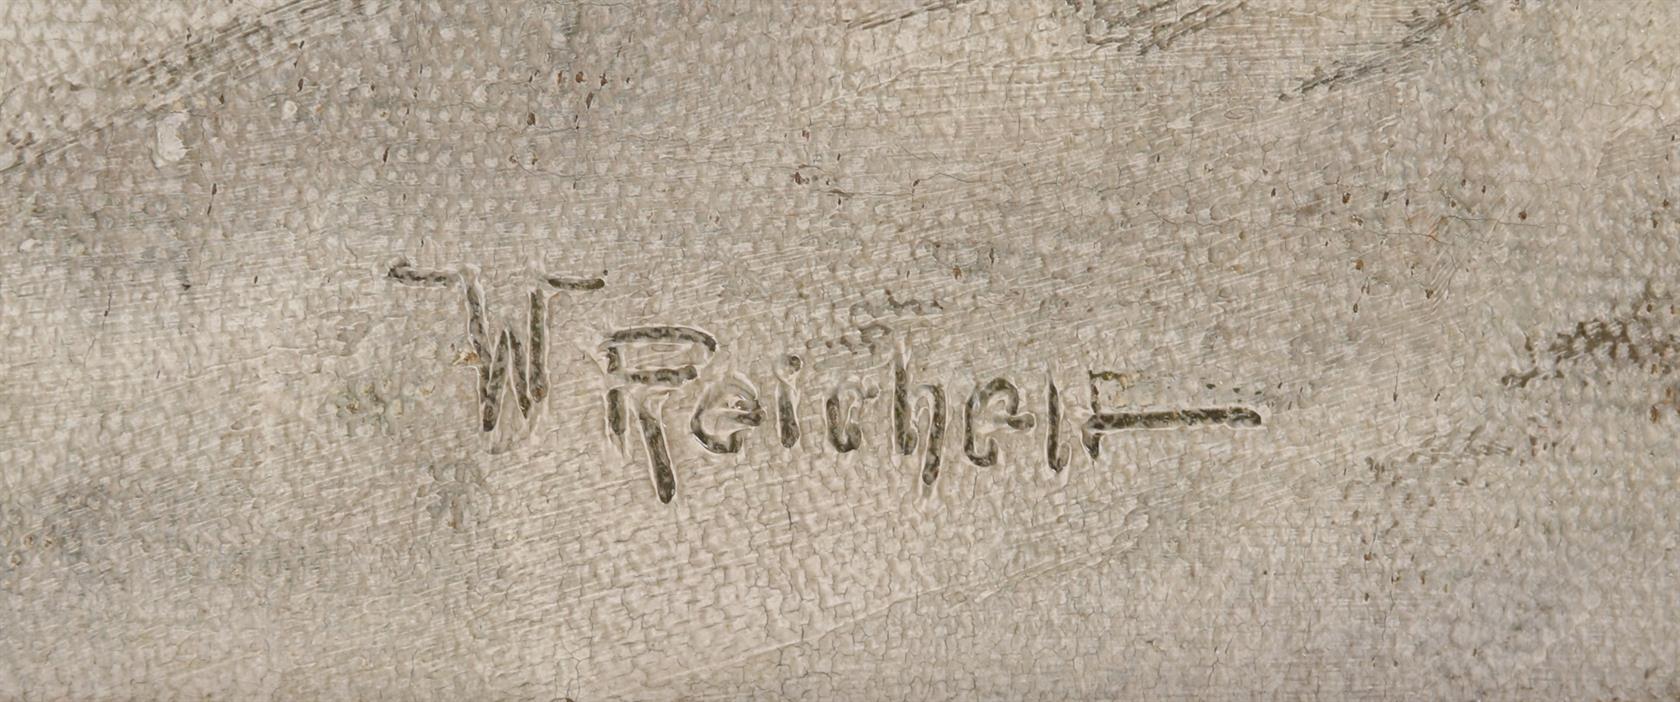 W Reichelt